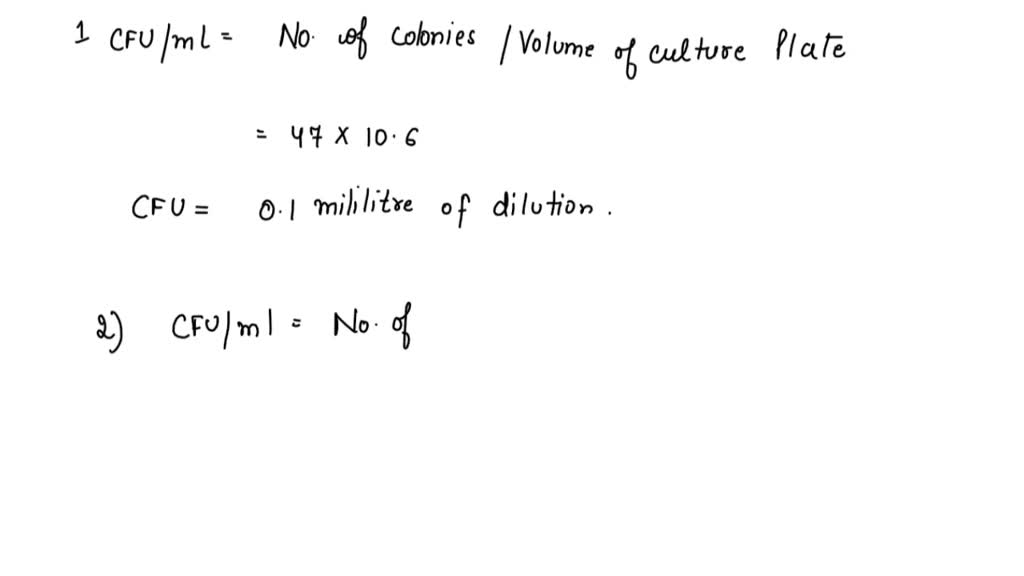 1 CFU/ml = No. of colonies / Volume of culture Plate
= 47 x 10.6
CFU = 0.1 mililitre of dilution.
2) CFU/ml = No. of